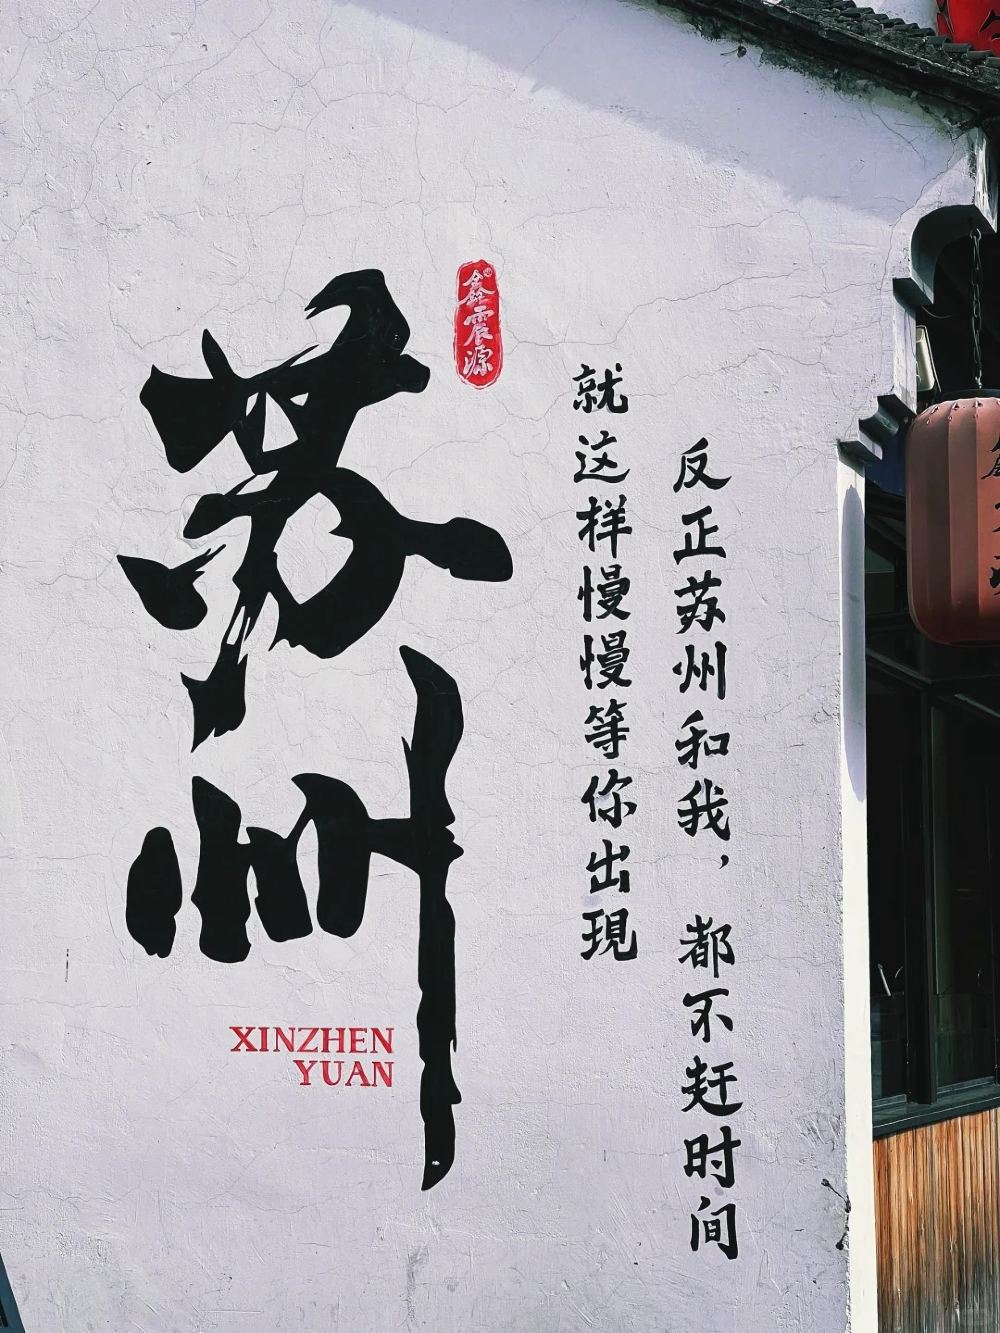 反正苏州和我，都不赶时间
就这样慢慢等你出現
鑫震源
苏州
XINZHEN
YUAN